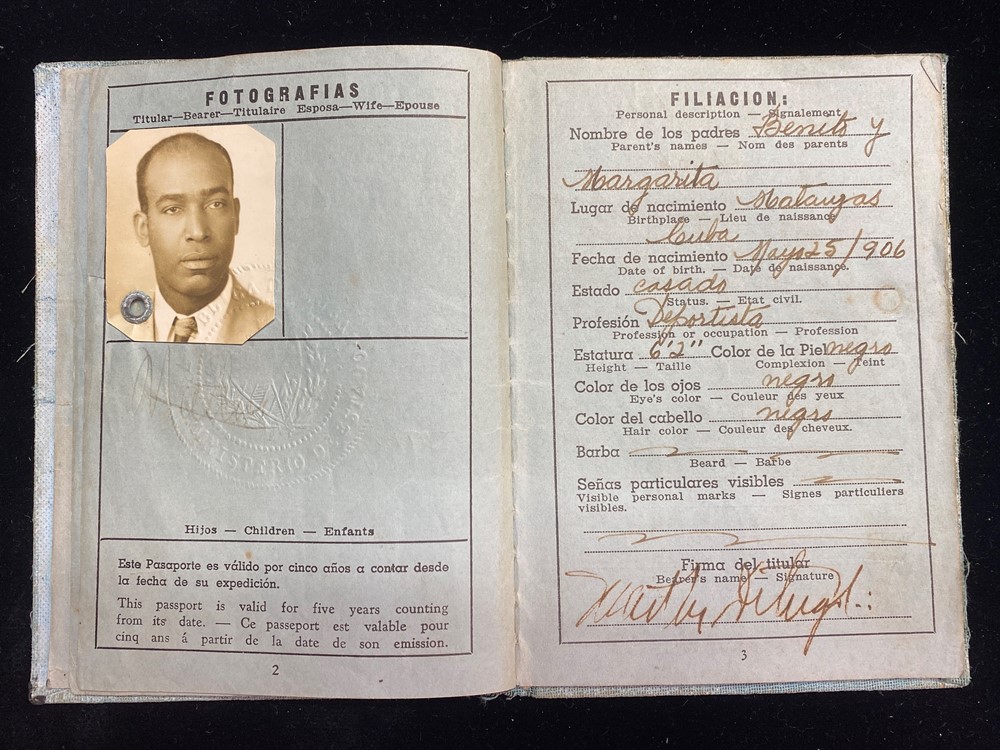 FOTOGRAFIAS
Titular—Bearer—Titulaire Esposa—Wife—Epouse
MINISTERIO DE ESTADO
Hijos — Children — Enfants
Este Pasaporte es válido por cinco años a contar desde
la fecha de su expedición.
This passport is valid for five years counting
from its date. — Ce passeport est valable pour
cinq ans á partir de la date de son emission.
2
FILIACION:
Personal description — Signalement
Nombre de los padres Benito y
Parent's names — Nom des parents
Margarita
Lugar de nacimiento Matanzas
Birthplace — Lieu de naissance
Cuba
Fecha de nacimiento Mayo 25/906
Date of birth. — Date de naissance.
Estado casado
Status. — Etat civil.
Profesión Deportista
Profession or occupation — Profession
Estatura 6'2" Color de la Piel negro
Height — Taille Complexion — Teint
Color de los ojos negro
Eye's color — Couleur des yeux
Color del cabello negro
Hair color — Couleur des cheveux.
Barba
Beard — Barbe
Señas particulares visibles
Visible personal marks — Signes particuliers
visibles.
Firma del titular
Bearer's name — Signature
3